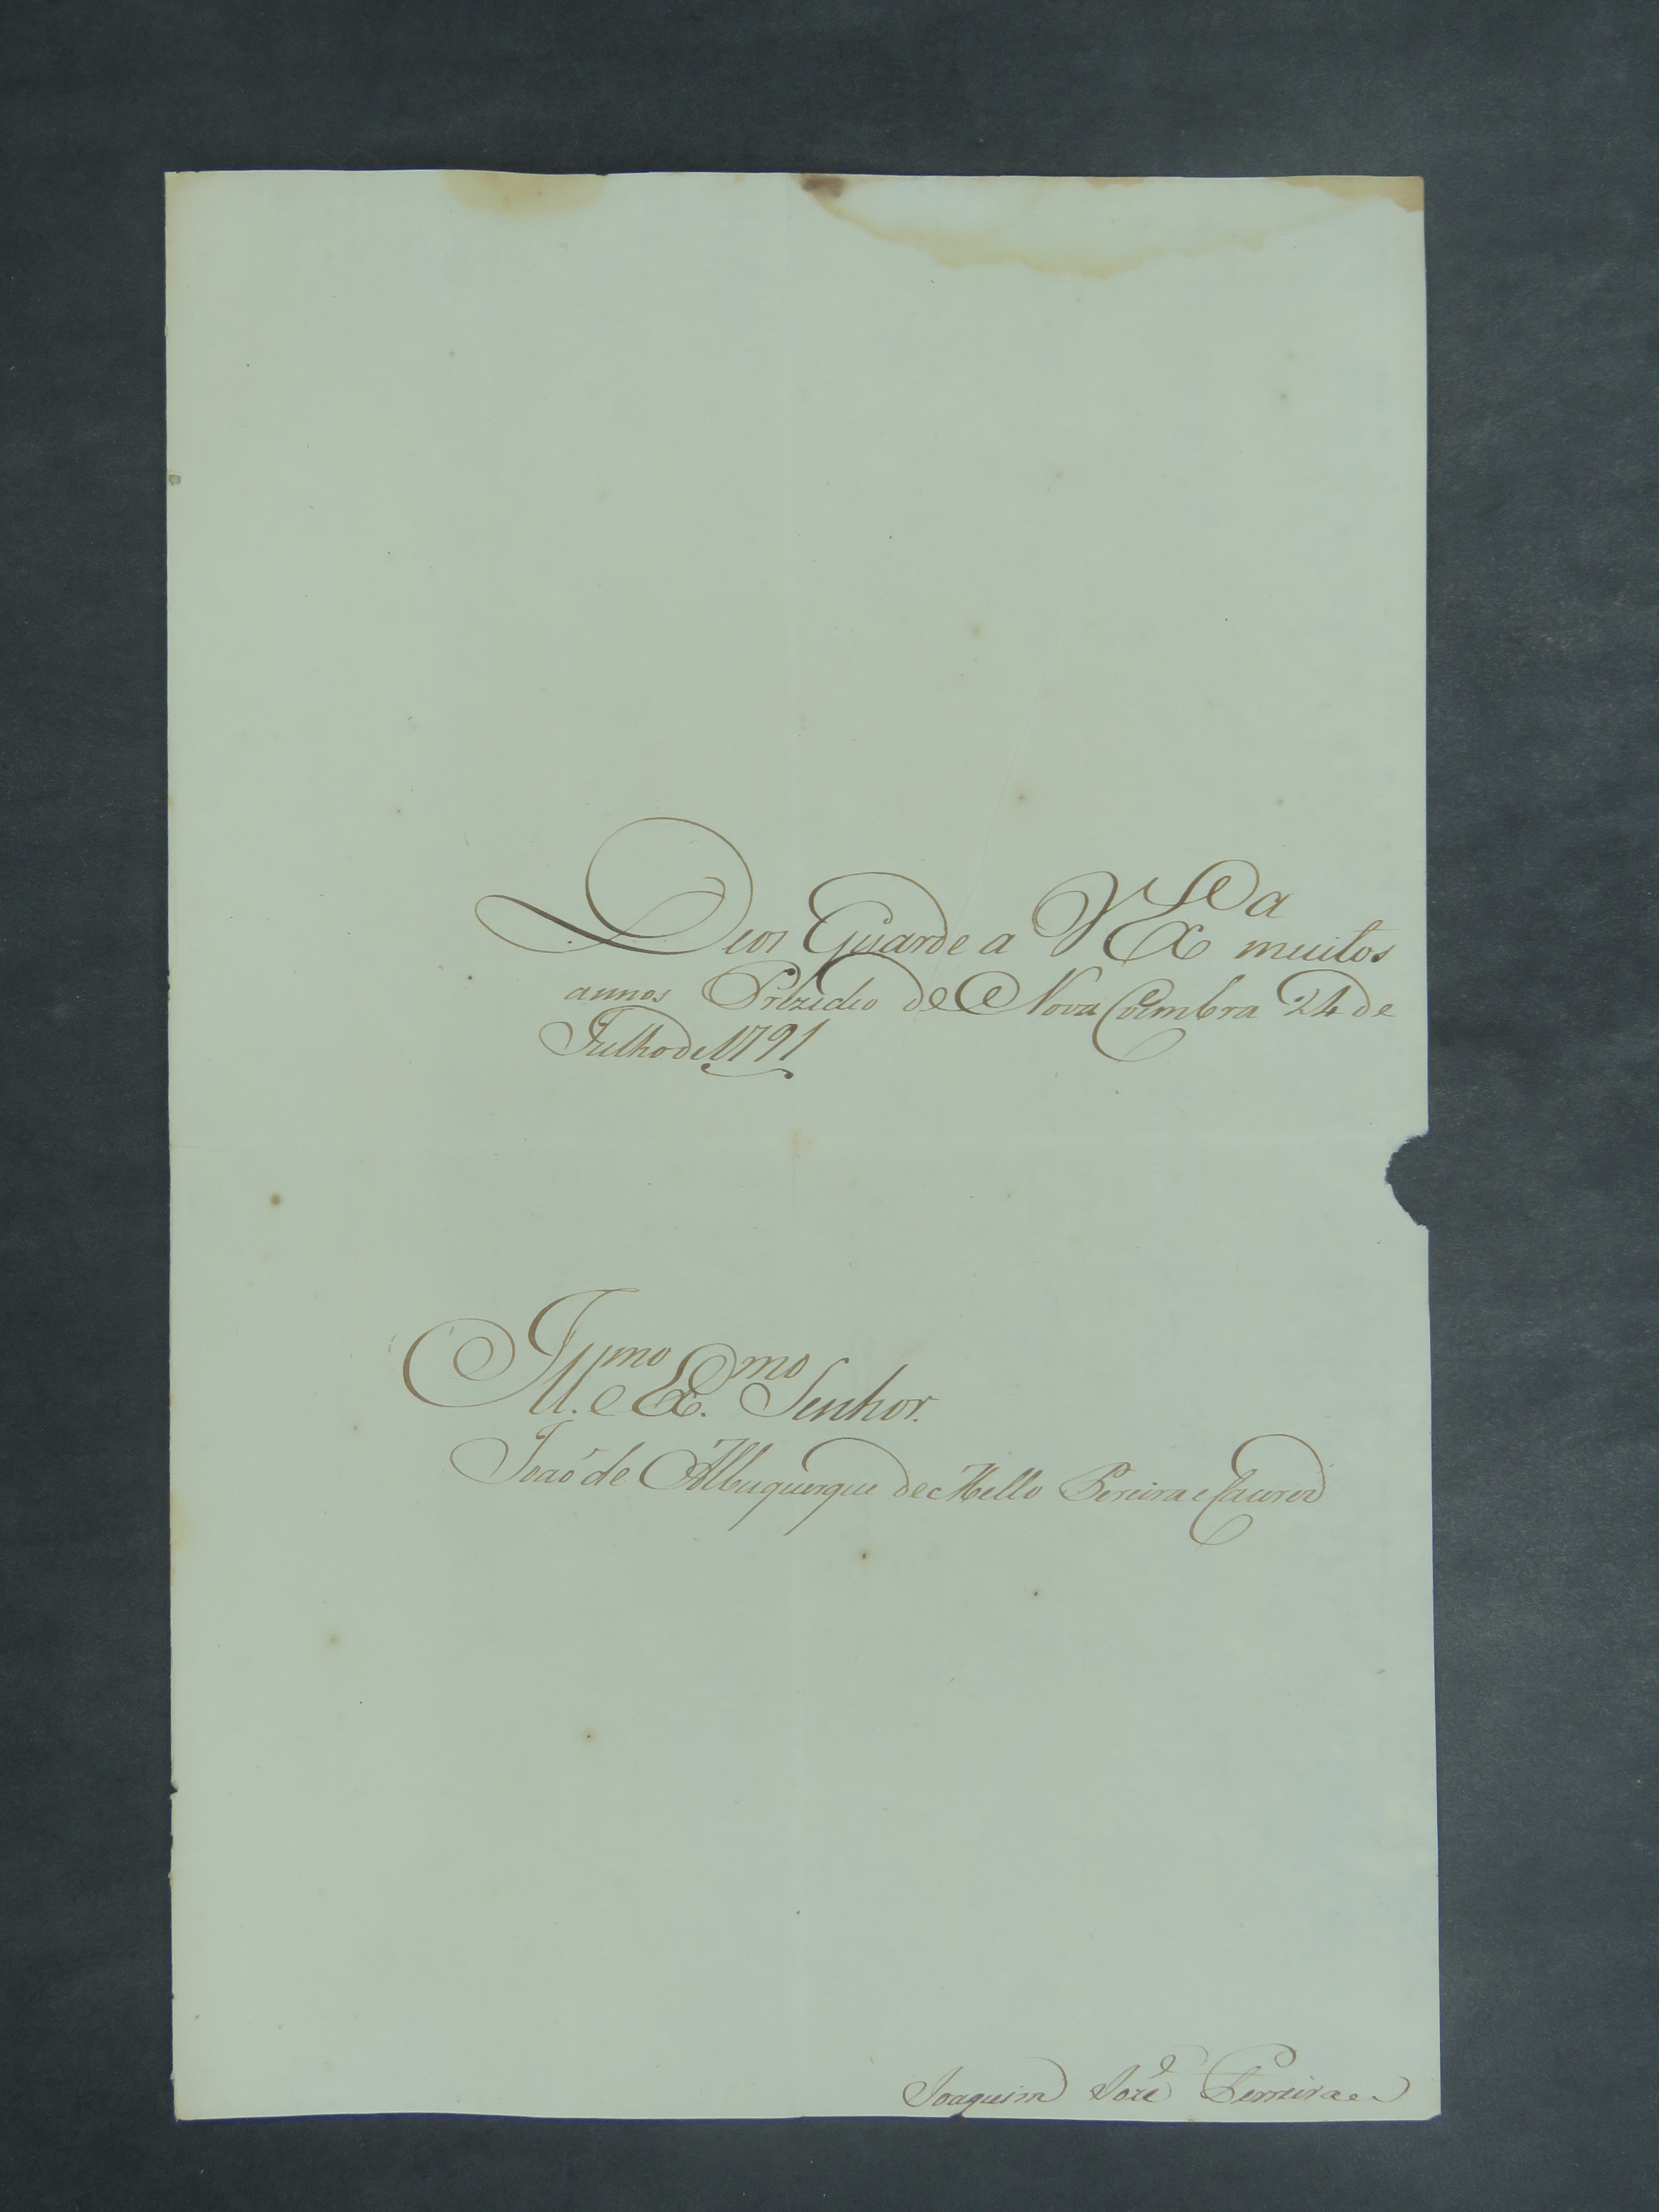 Deos Guarde a V Ex.a muitos
annos Prezidio de Nova Coimbra 24 de
Julho de 1791
Ill.mo e Ex.mo Senhor.
João de Albuquerque de Mello Pereira e Caceres
Joaquim Jozé Ferreira